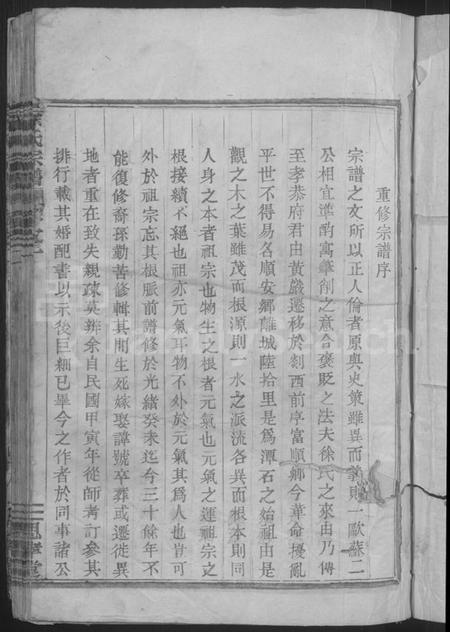 重修宗譜序
宗譜之文所以正人倫者原與史策雖異而義則一歐蘇二
公相宜準酌寓筆削之意合褒貶之法夫徐氏之來由乃傳
至孝恭府君由黃嚴遷移於剡西前序富順鄉今革命擾亂
平世不得易名順安鄉離城陸拾里是爲潭石之始祖由是
觀之木之葉雖茂而根源則一水之派流各異而根本則同
人身之本者祖宗也物生之根者元氣也元氣之運祖宗之
根接續不絕也祖亦元氣耳物不外於元氣其爲人也豈可
外於祖宗忘其根脈前譜修於光緒癸未迄今三十餘年不
能復修裔孫勤苦修輯其間生死嫁娶諱號卒葬或遷徙異
地者重在致失親疎莫辨余自民國甲寅年從師考訂參其
排行載其婚配書以示後巨細已畢今之作者於同事諸公
氏宗譜